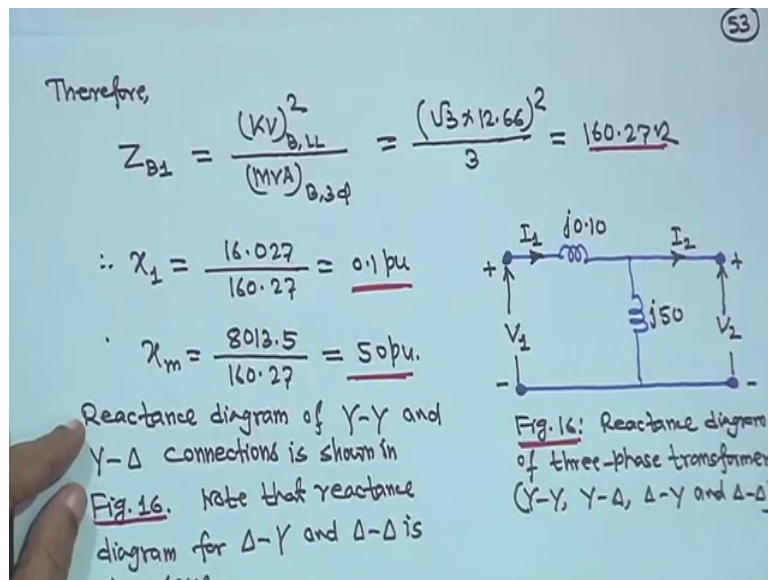 53
Therefore,
Z_B1 = (KV)²_B,LL / (MVA)_B,3φ = (√3 × 12.66)² / 3 = 160.27 Ω
∴ x₁ = 16.027 / 160.27 = 0.1 pu
∴ x_m = 8013.5 / 160.27 = 50 pu.
I₁ j0.10 I₂
+ +
V₁ j50 V₂
- -
Reactance diagram of Y-Y and
Y-Δ connections is shown in
Fig. 16. Note that reactance
diagram for Δ-Y and Δ-Δ is
Fig. 16: Reactance diagram
of three-phase transformer
(Y-Y, Y-Δ, Δ-Y and Δ-Δ)